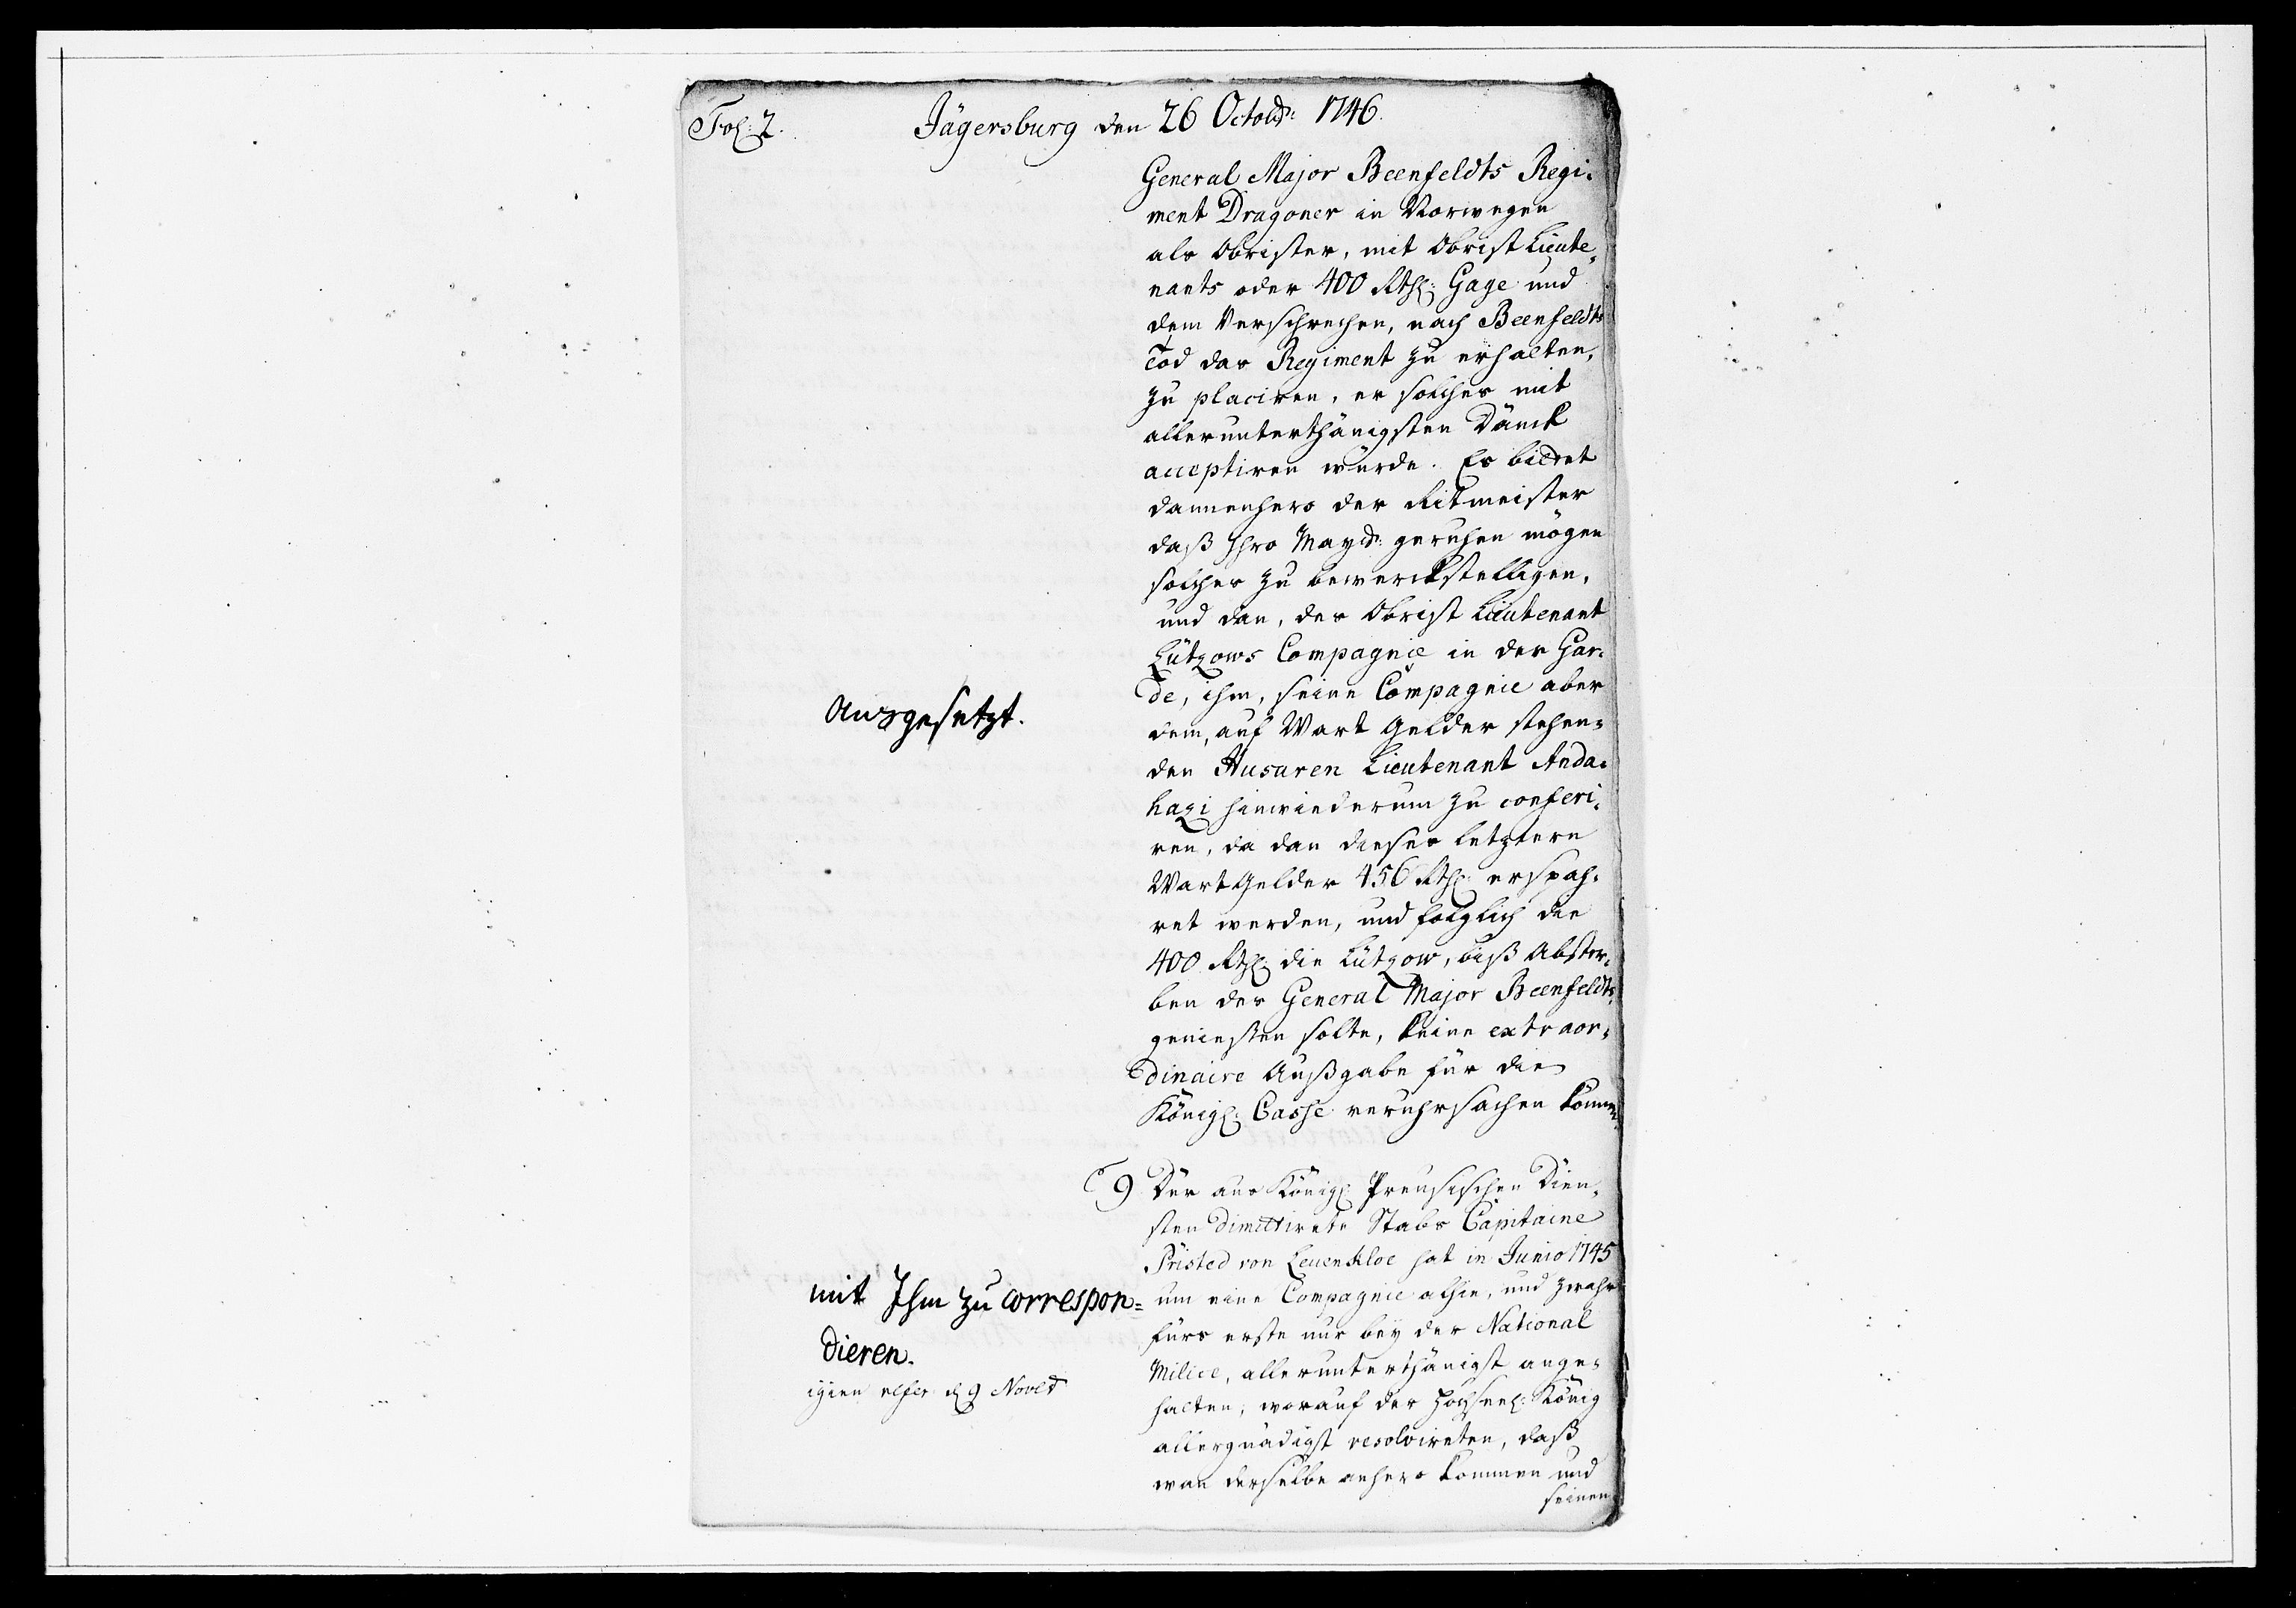 Fol: 2.
Jägersburg den 26 Octobr: 1746.
General Major Beenfeldts Regi-
ment Dragoner in Norwegen
als Obrister, mit Obrist Lieute-
nants oder 400 Rthl: Gage und
dem Versprechen, nach Beenfeldts
Tod das Regiment zu erhalten,
zu placiren, er solches mit
allerunterthänigsten Danck
acceptiren würde. Es bittet
dannenhero der Ritmeister
daß Ihro Mayt: geruhen mögen
solches zu bewerckstelligen,
und dan, des Obrist Lieutenant
Lützows Compagnie in der Gar-
de, ihm, seine Compagnie aber
Ausgesetzt.
dem, auf Wart Gelder stehen-
den Husaren Lieutenant Anda-
hazi hinwiederum zu conferi-
ren, da dan dieses letztern
Wart Gelder 456 Rthl: erspah-
ret werden, und folglich die
400 Rthl: die Lützow, biß Abster-
ben des General Major Beenfeldts,
geniessen solte, keine extraor-
dinaire Außgabe für die
Königl: Casse veruhrsachen könne.
9 Der aus Königl: Preusischen Dien-
sten dimittirete Stabs Capitaine
Pristed von Leuenkloe hat in Junio 1745
mit Ihm zu correspon=
um eine Compagnie alhie, und zwahr
fürs erste nur bey der National
dieren.
Milice, allerunterthänigst ange-
9 Novbr
halten, worauf der Hochseel: König
allergnädigst resolvireten, daß
wan derselbe anhero kommen und
seinen